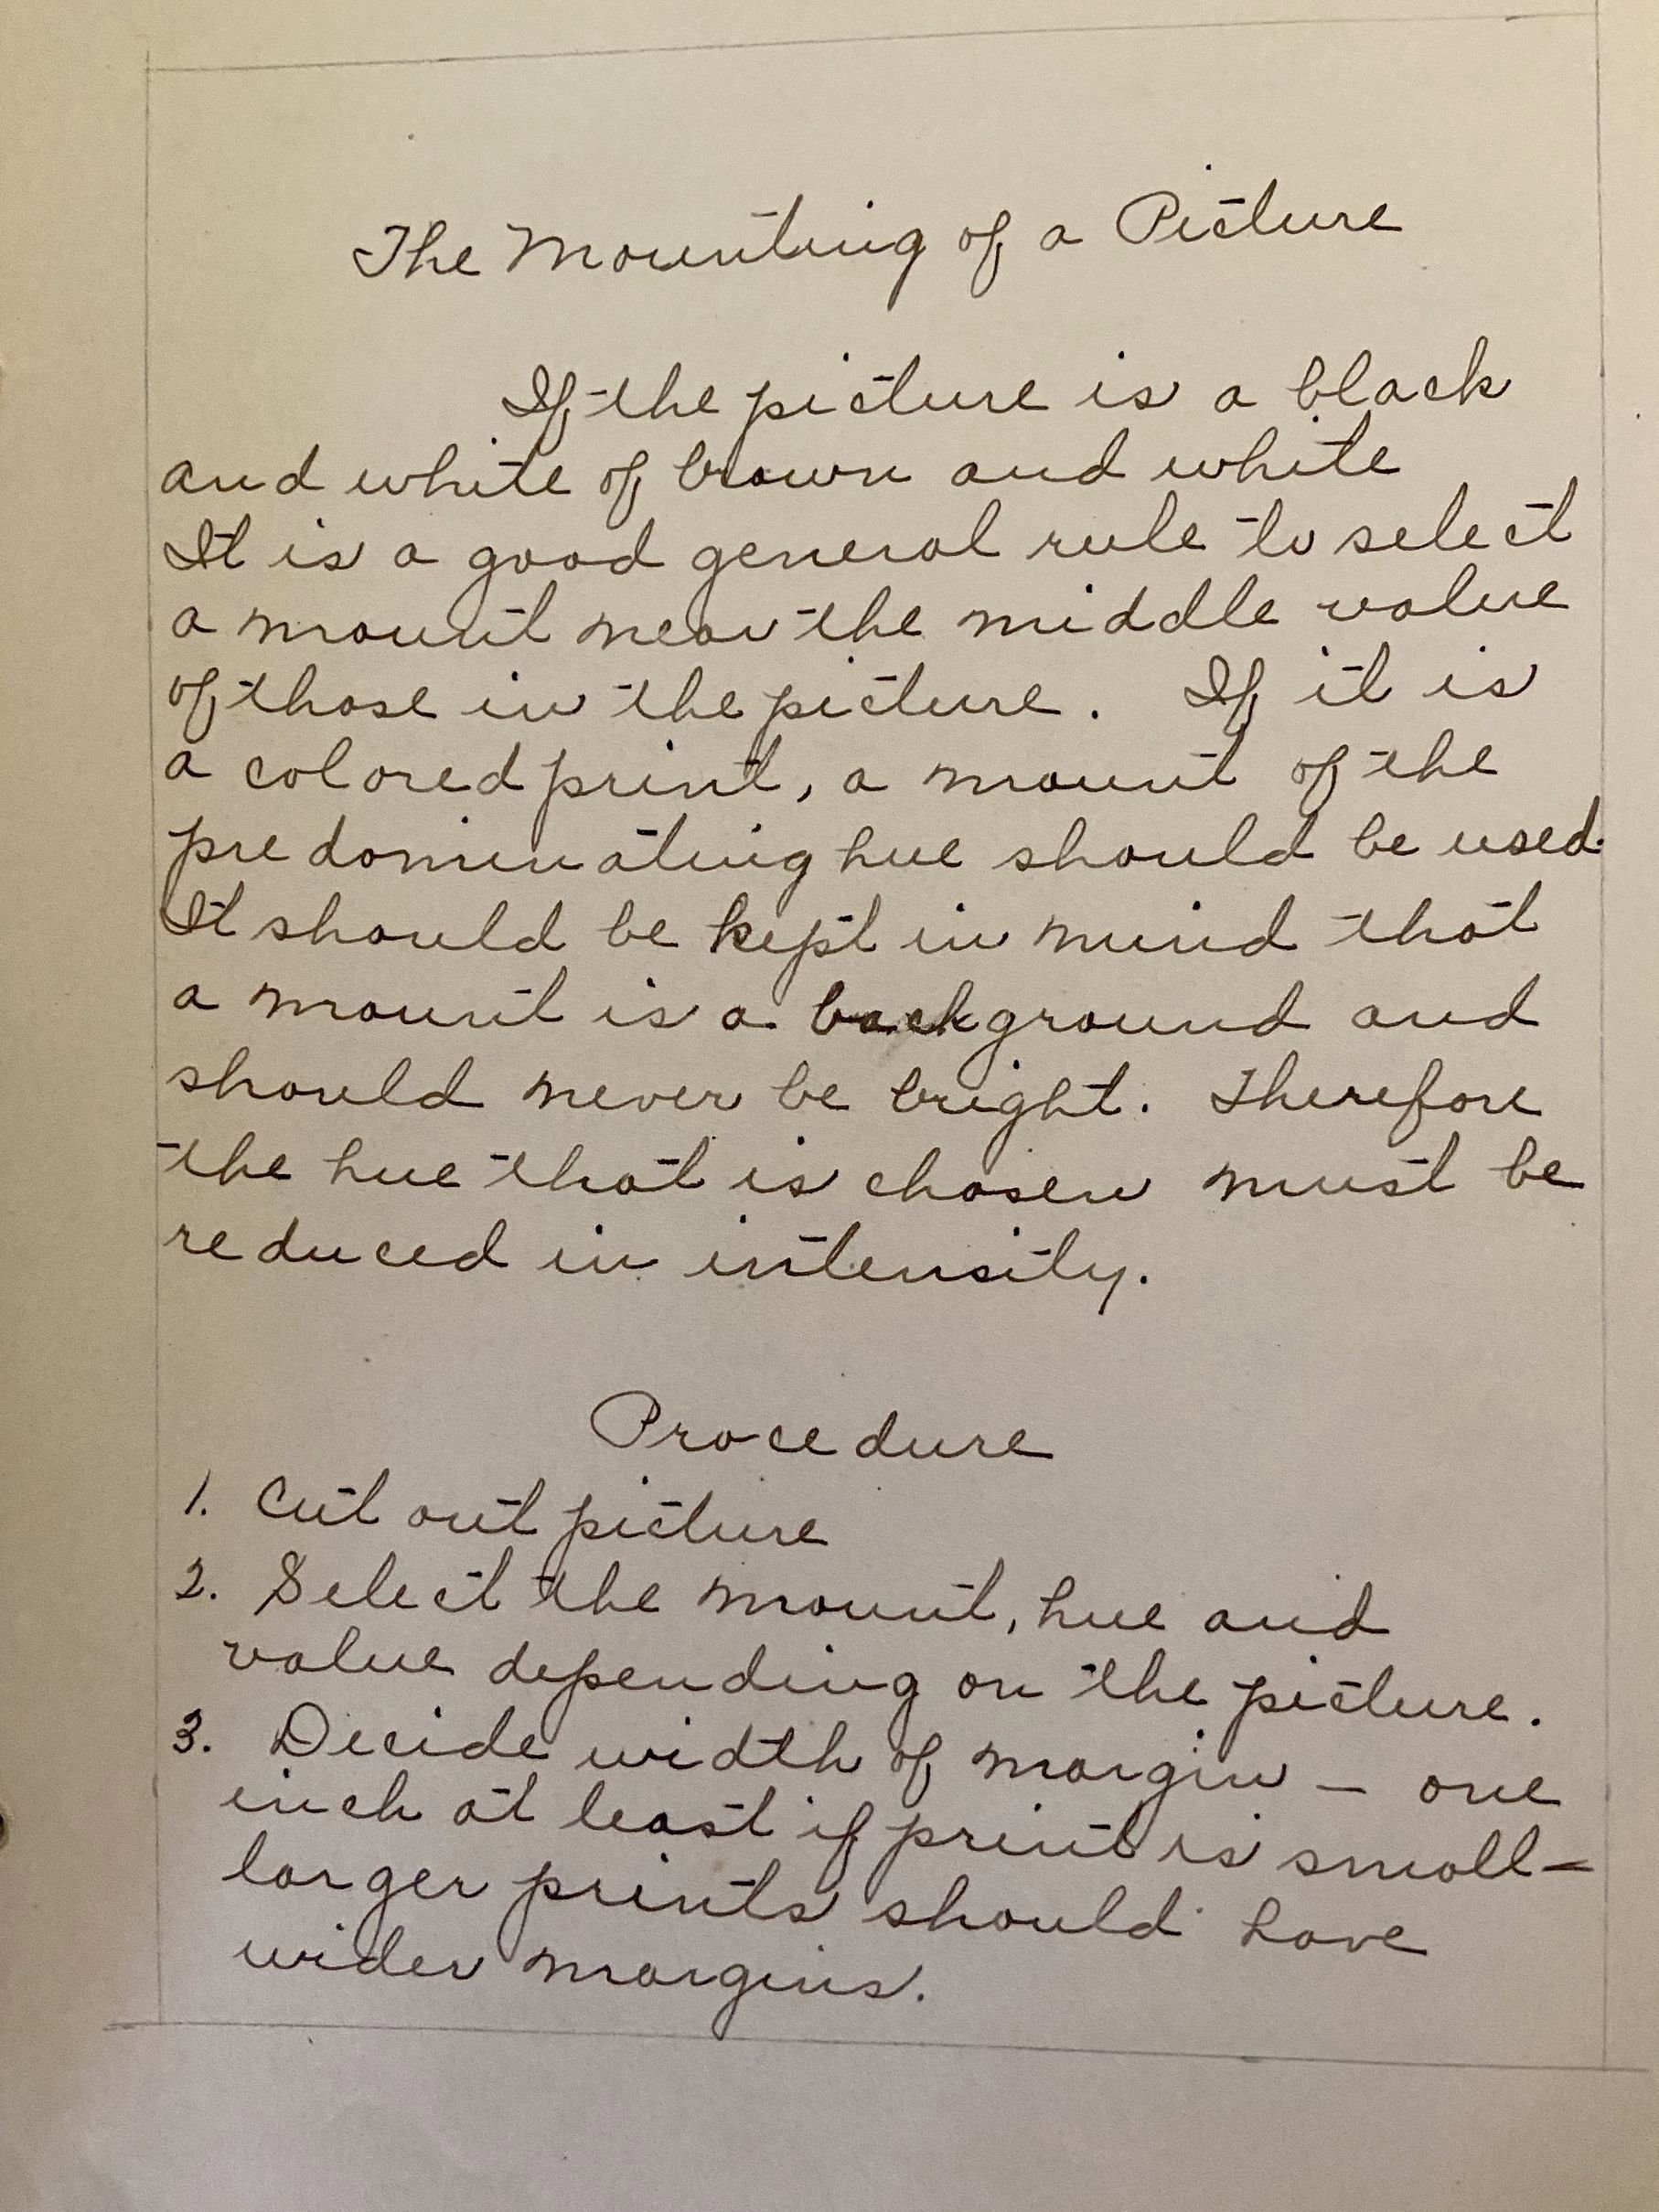 The Mounting of a Picture
If the picture is a black
and white of brown and white
It is a good general rule to select
a mount near the middle value
of those in the picture. If it is
a colored print, a mount of the
predominating hue should be used.
It should be kept in mind that
a mount is a background and
should never be bright. Therefore
the hue that is chosen must be
reduced in intensity.
Procedure
1. Cut out picture
2. Select the mount, hue and
value depending on the picture.
3. Decide width of margin – one
inch at least if print is small –
larger prints should have
wider margins.